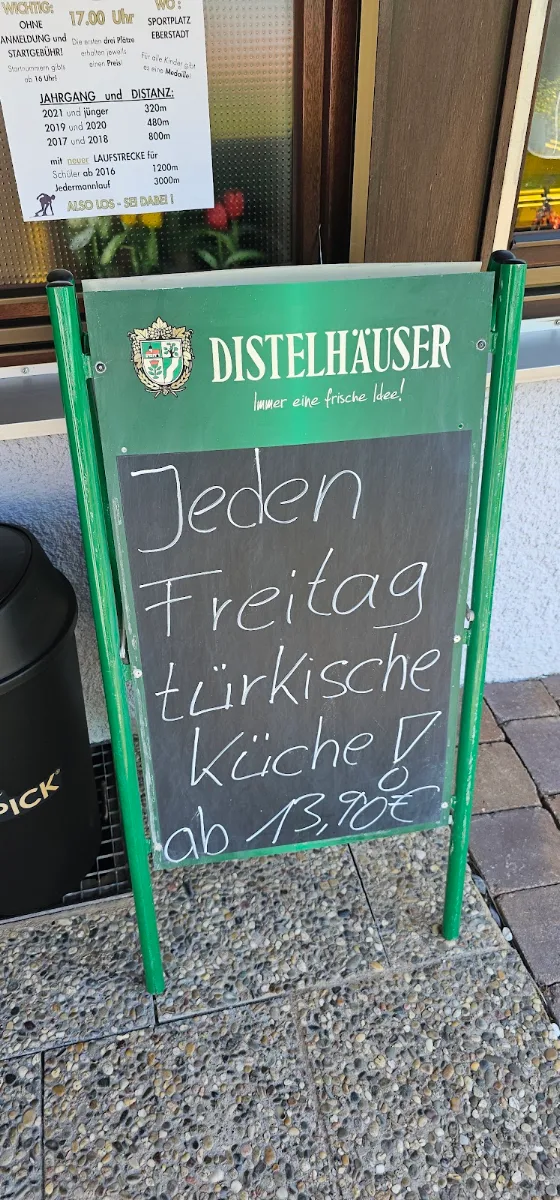 WICHTIG:
OHNE
ANMELDUNG und
STARTGEBÜHR!
Startnummern gibts
ab 16 Uhr!
17.00 Uhr
Die ersten drei Plätze
erhalten jeweils
einen Preis!
WO:
SPORTPLATZ
EBERSTADT
Für alle Kinder gibt
es eine Medaille!
JAHRGANG und DISTANZ:
2021 und jünger 320m
2019 und 2020 480m
2017 und 2018 800m
mit neuer LAUFSTRECKE für
Schüler ab 2016 1200m
Jedermannlauf 3000m
ALSO LOS - SEI DABEI !
DISTELHÄUSER
Immer eine frische Idee!
Jeden
Freitag
türkische
Küche !
ab 13,90€
PICK